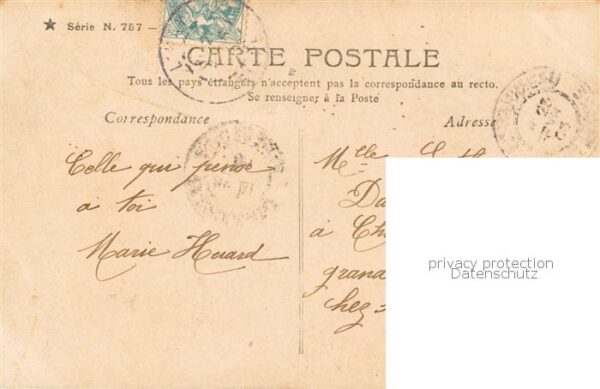 ★ Série N. 757 –
CARTE POSTALE
Tous les pays étrangers n'acceptent pas la correspondance au recto.
Se renseigner à la Poste
Correspondance
Adresse
Celle qui pense
à toi
Marie Huard
Mlle
Da
à Ch
grand
chez
privacy protection
Datenschutz